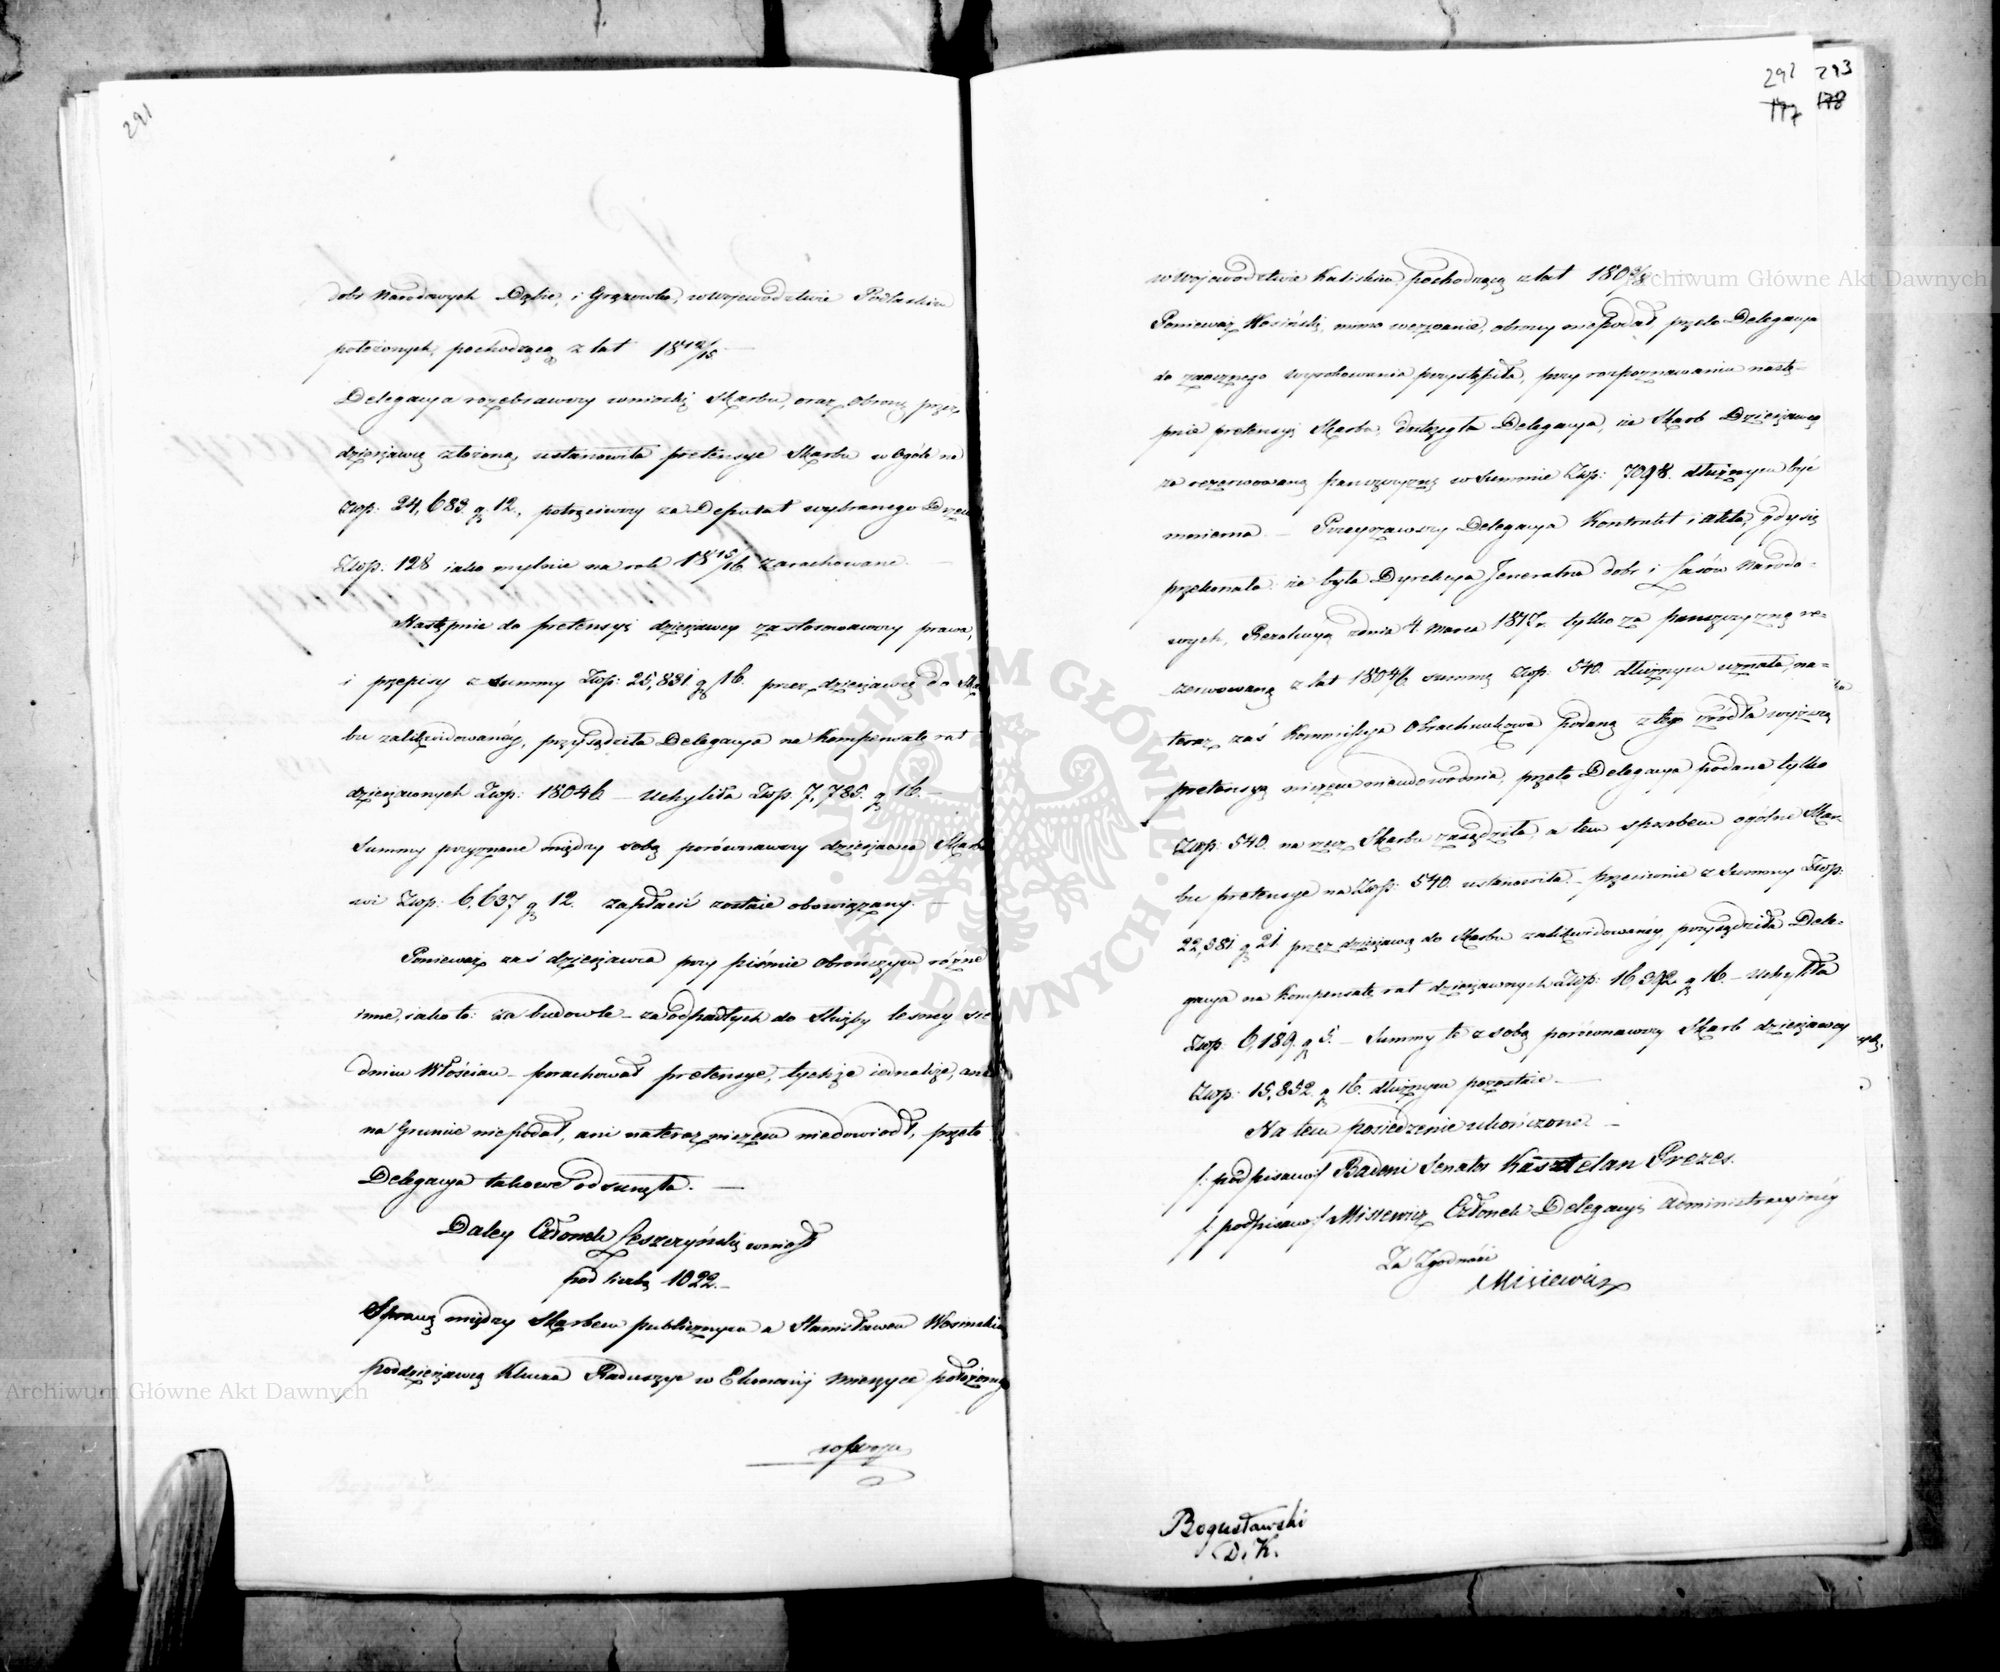 291
dobr Narodowych Dąbie, i Gręzowka, w Województwie Podlaskim
położonych, pochodzącą z lat 18 12/15. —
Delegacya rozebrawszy wnioski Skarbu, oraz obronę przez
dzierżawcę złożoną, ustanowiła pretensye Skarbu w ogóle na
Złłp: 24,683. g 12., potrąciwszy za Deputat wybranego Drzewa
Złłp. 128 iako mylnie na rok 18 15/16 zarachowane. —
Następnie do pretensyi dzierżawcy zastosowawszy prawa,
i przepisy z summy Złłp: 25,831 g 16. przez dzierżawcę do Skar
bu zalikwidowanéy, przysądziła Delegacya na kompensatę rat
dzierżawnych Złłp: 18046 — Uchyliła Złłp. 7,785. g 16. —
Summy przyznane między sobą porównawszy dzierżawca Skarbo
wi Złłp: 6,637 g 12. zapłacić zostaie obowiązany. —
Ponieważ zaś dzierżawca przy piśmie obrończym różne
inne, iako to: za budowle — za odpadłych do służby lesnéy sie
dmiu Włościan — porachował pretensye, tychże iednakże, ani
na Gruncie niepodał, ani na teraz niczem niedowiodł, przeto
Delegacya takowe odsunęła. —
Daley Członek Leszczyński wniósł
pod liczbą 1022. —
Sprawę między Skarbem publicznym a Stanisławem Kosinskim
poddzierżawcą Klucza Raduszyc w Ekonomij Mierzyce położonego
w Woje
292 293
177 178
w Województwie Kaliskim pochodzącą z lat 180
Ponieważ Kosiński, mimo wezwania, obrony niepodał, przeto Delegacya
do zaocznego wyrokowania przystąpiła, przy rozpoznawaniu nastę-
pnie pretensyi Skarbu, dostrzegła Delegacya, że Skarb Dzierżawcę
za rezerwowaną panszczyznę w Summie Złłp: 7098. dłużnym być
mieni — Przeyrzawszy Delegacya Kontrakt i akta, gdy się
przekonała że była Dyrekcya Jeneralna dobr i Lasów Narodo-
wych, Rezolucyą z dnia 4. Marca 1817 r. tylko za panszczyznę re-
zerwowaną z lat 180 summę Złłp: 540. dłużnym uznała, na-
teraz zaś Kommissya Obrachunkowa podaną z tego źródła wyższą
pretensyą niczem nieudowodnia, przeto Delegacya podane tylko
Złłp: 540. na rzecz Skarbu zasądziła, a tem sposobem ogólne Skar
bu pretensye na Złłp: 540. ustanowiła — przeciwnie z Summy Złłp:
22,581 g 21. przez dzierżawcę do Skarbu zalikwidowanéy przysądziła Dele-
gacya na kompensatę rat dzierżawnych Złłp: 16,392 g 16. — Uchyliła
Złłp: 6,189. g 5. — Summy te z sobą porównawszy Skarb dzierżawcy
Złłp: 15,852. g 16. dłużnym pozostaie —
Na tem posiedzenie ukończono. —
/: podpisano :/ Badeni Senator Kasztelan Prezes.
/: podpisano :/ Misiewicz Członek Delegacyi Administracyinéy
Za Zgodność
Misiewicz
Bogusławski
D. K.
Archiwum Główne Akt Dawnych
Archiwum Główne Akt Dawnych
· ARCHIWUM GŁÓWNE · AKT DAWNYCH ·